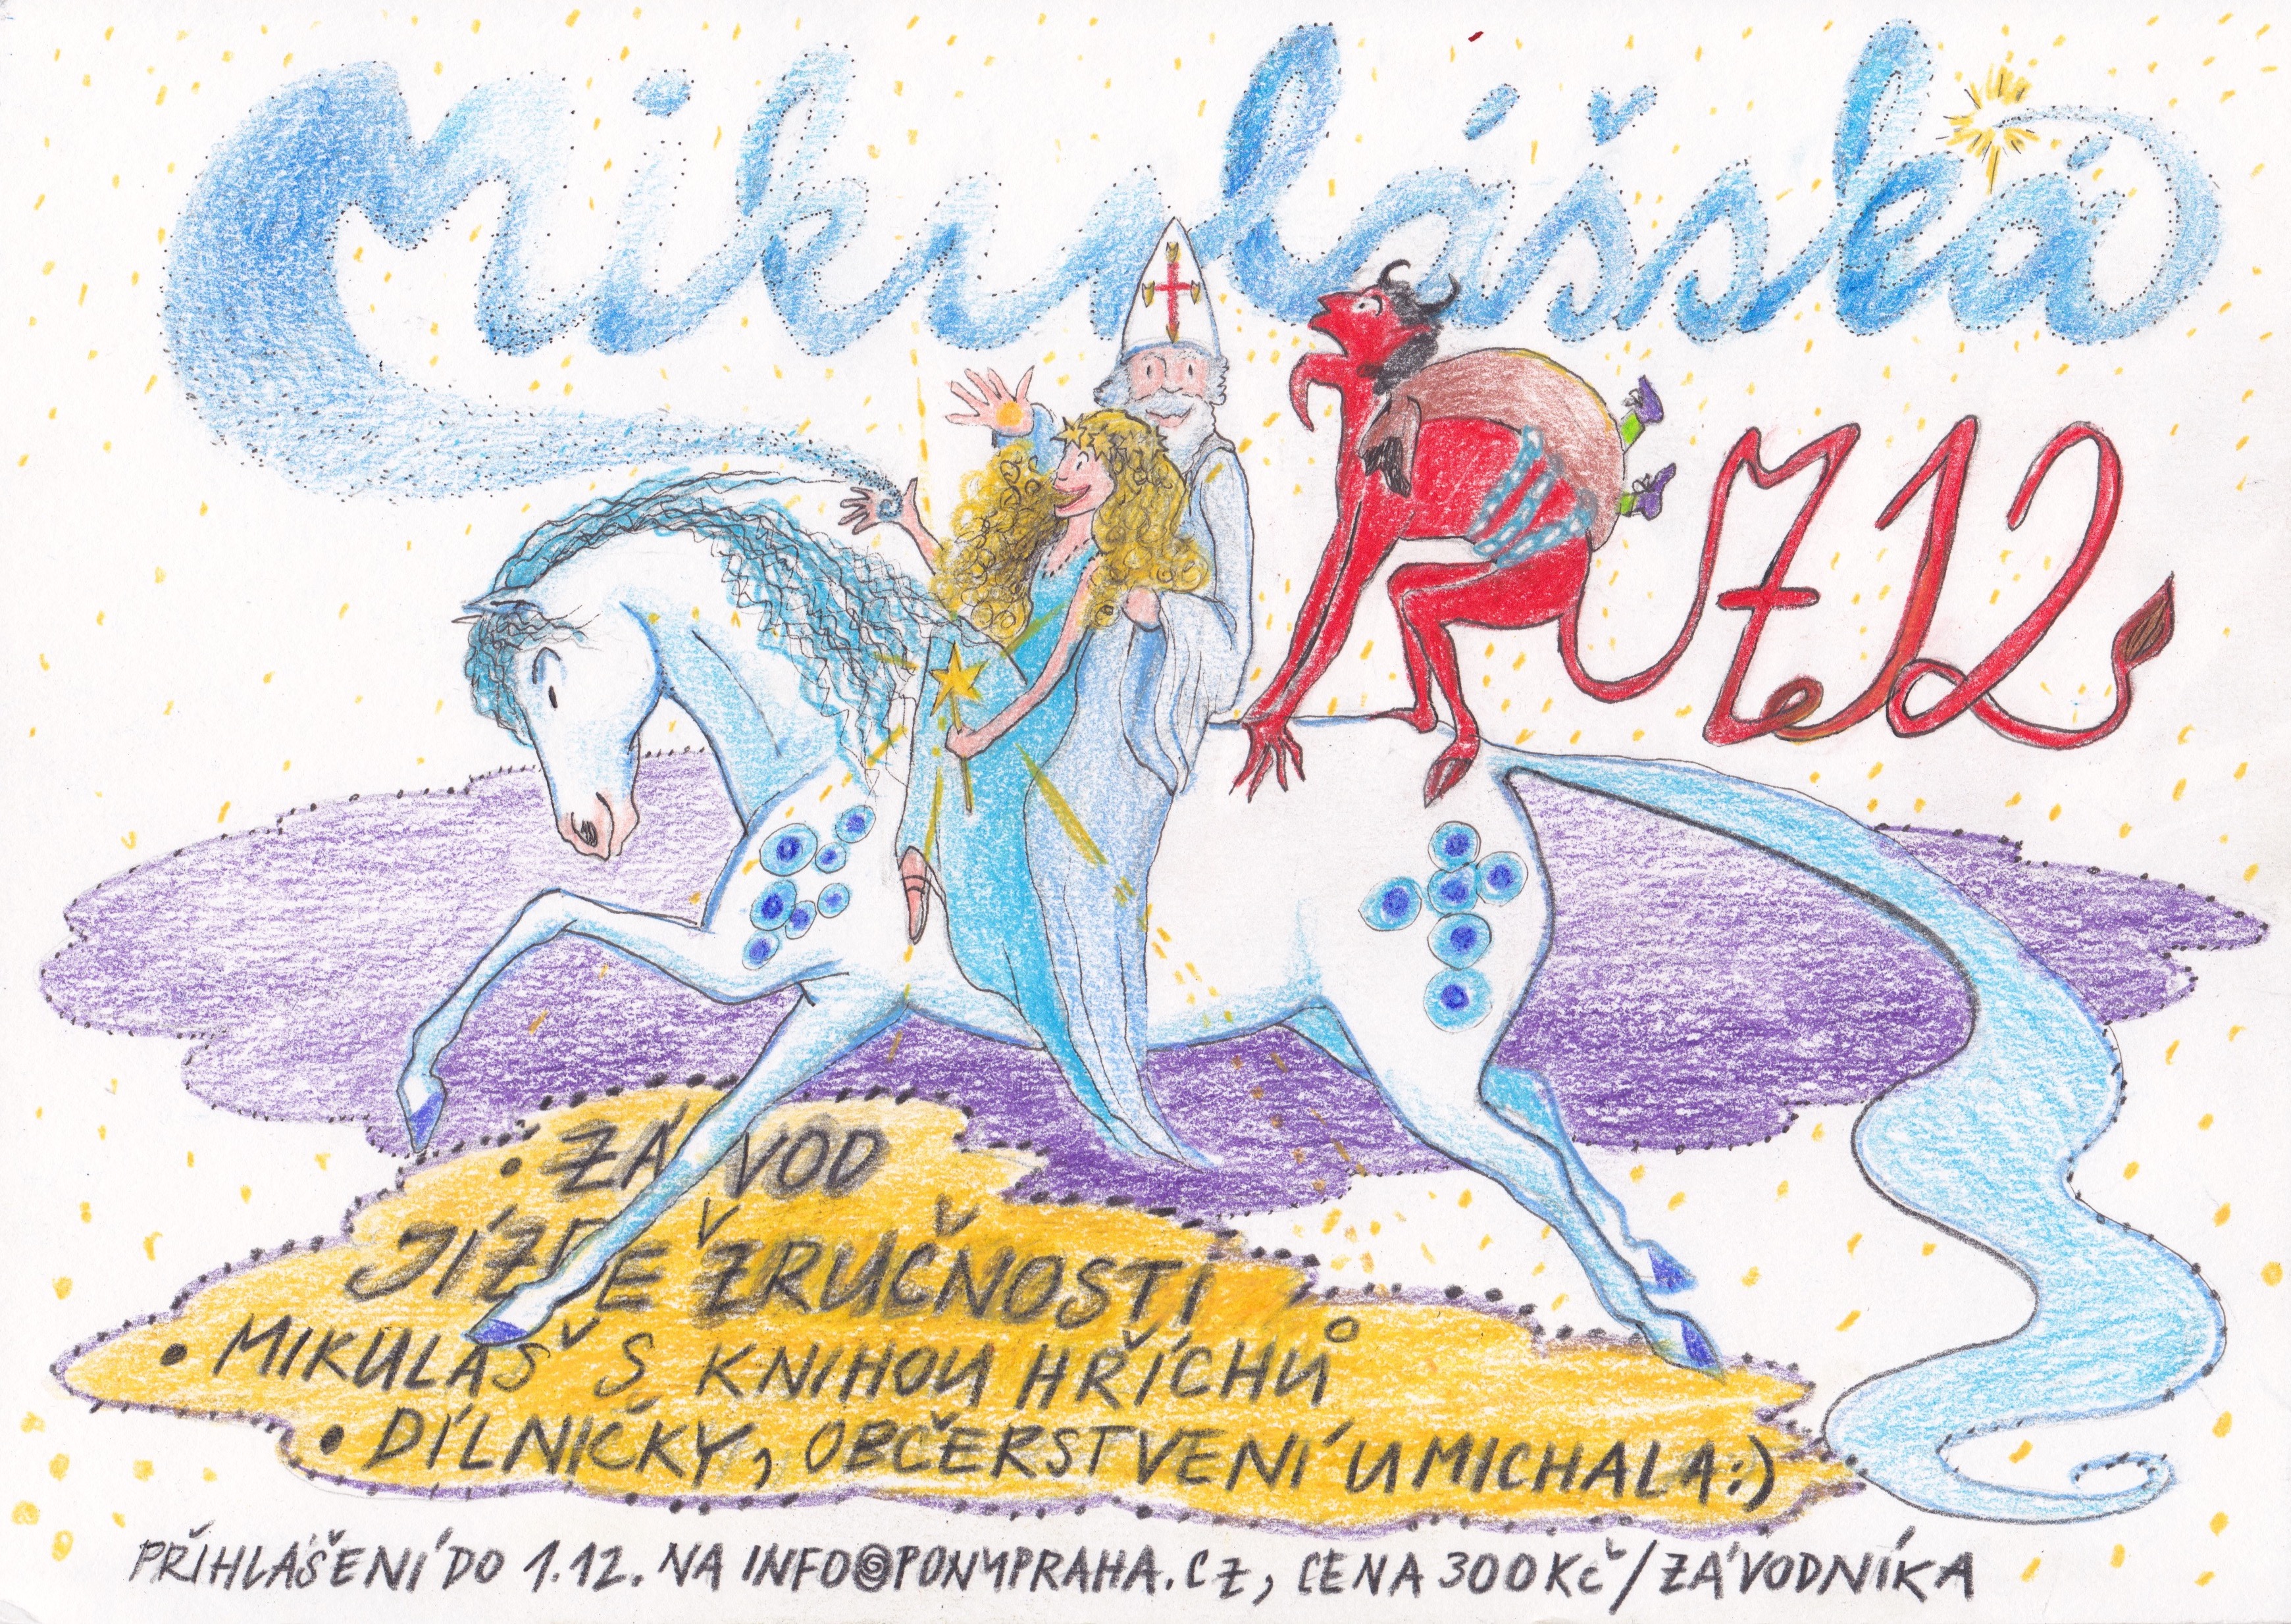 Mikulášská
7.12
• ZÁVOD
JÍZDE ZRUČNOSTI
• MIKULÁŠ S KNIHOU HŘÍCHŮ
• DÍLNIČKY, OBČERSTVENÍ U MICHALA:)
PŘIHLÁŠENÍ DO 1.12. NA INFO@PONYPRAHA.CZ, CENA 300KČ/ZÁVODNÍKA